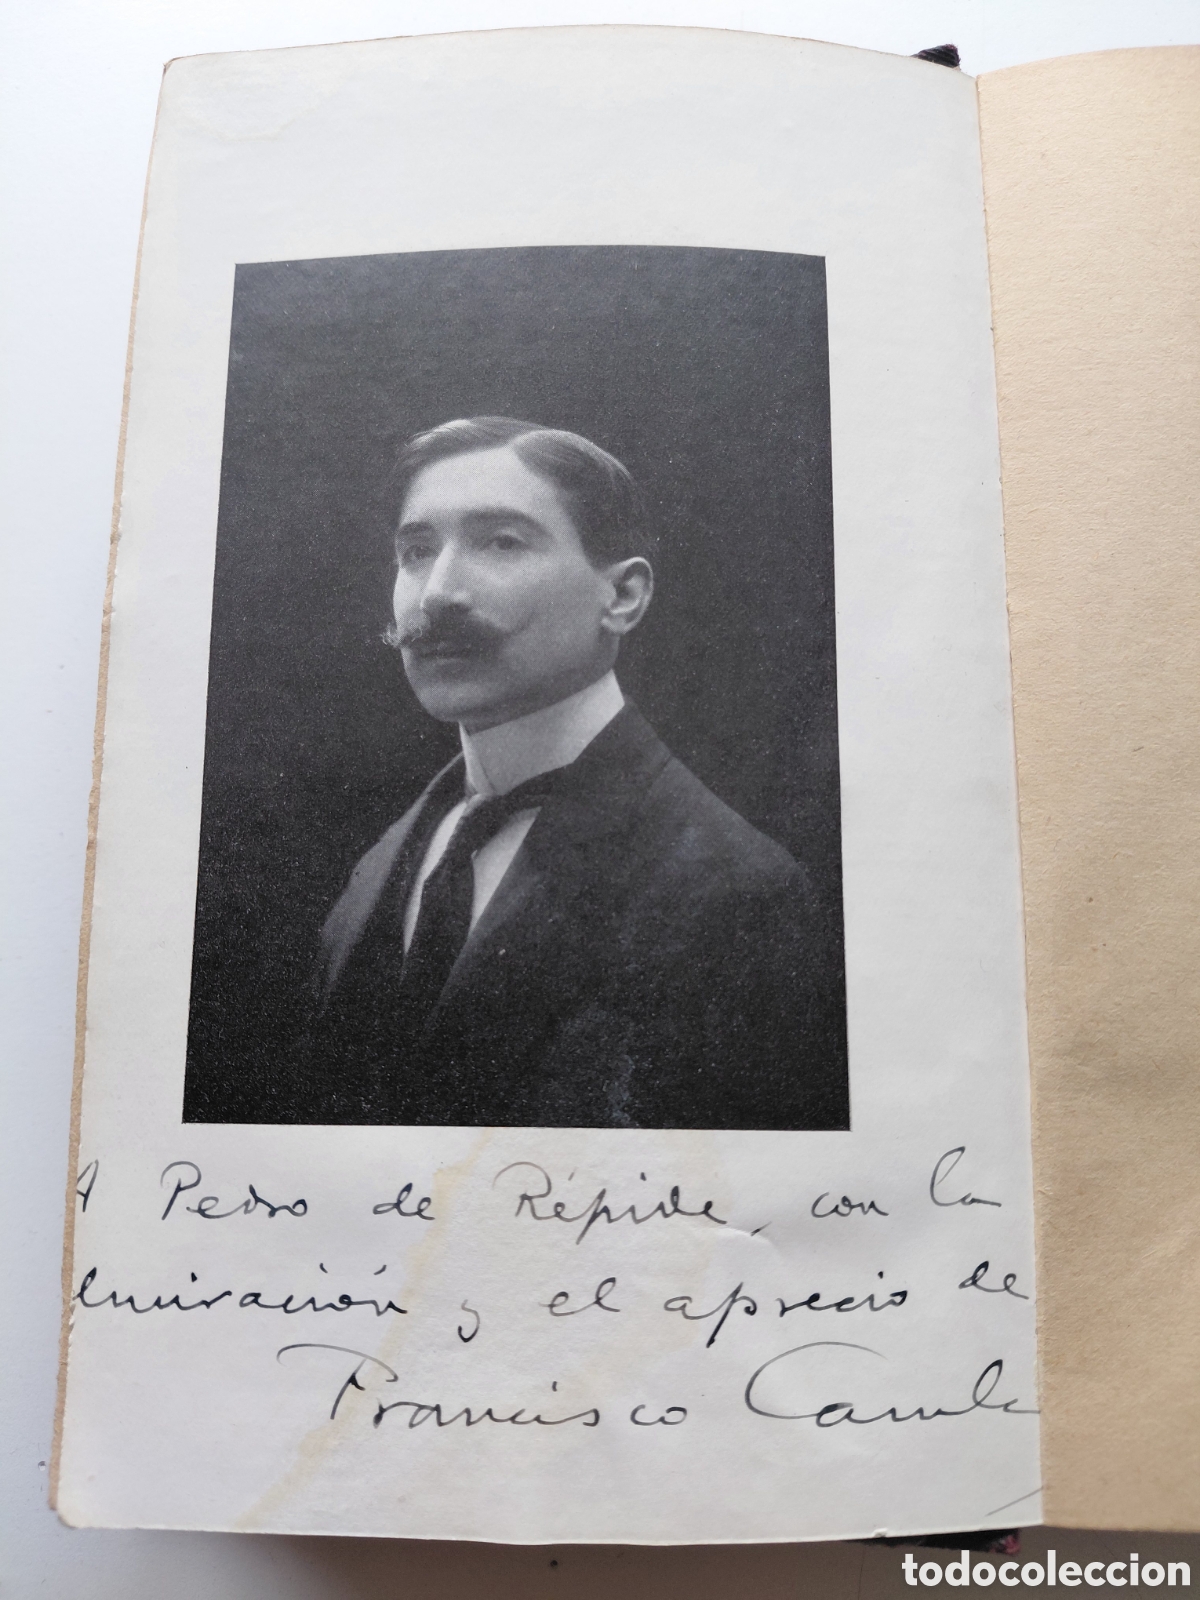 A Pedro de Répide, con la
dmiración y el aprecio de
Francisco
todocoleccion